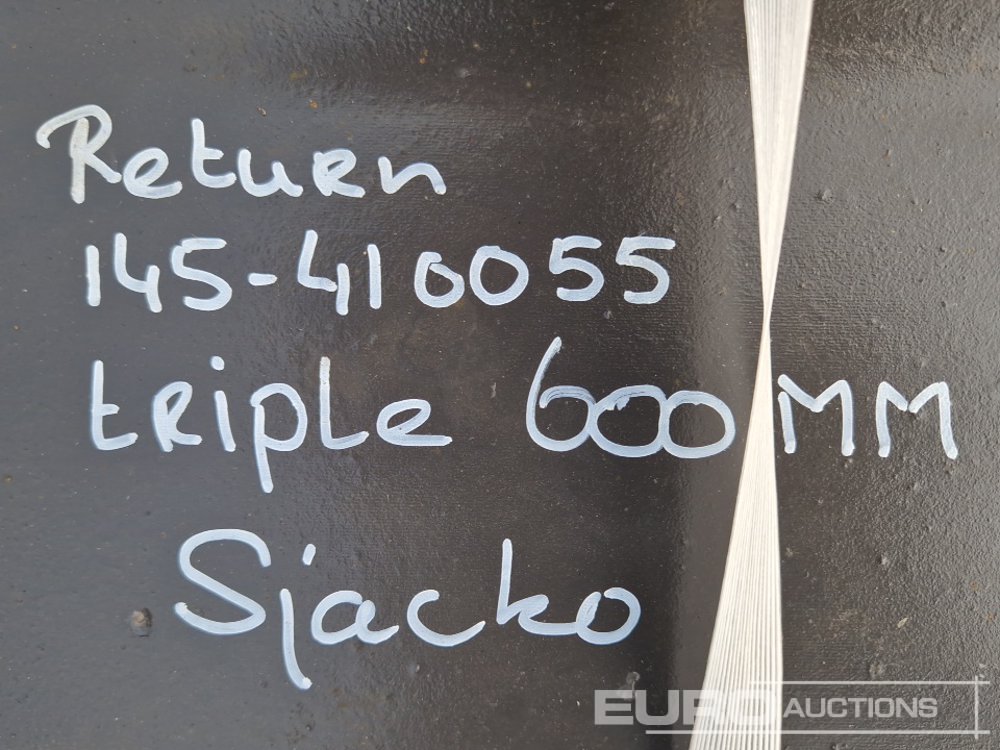 Return
145-410055
triple 600MM
Sjacko
EURO AUCTIONS